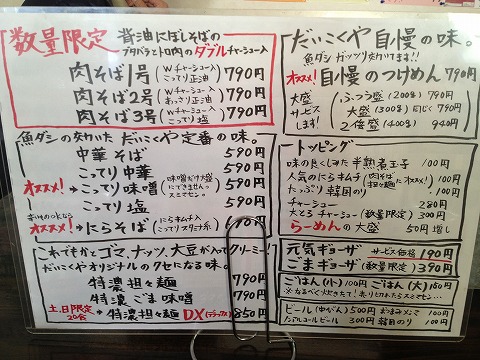 数量限定 醤油にぼしそばの
ブタバラとトロ肉のダブルチャーシュー入
肉そば1号 (Wチャーシュー入 こってり正油) 790円
肉そば2号 (Wチャーシュー入 あっさり正油) 790円
肉そば3号 (Wチャーシュー入 こってり塩) 790円
魚ダシの効いた だいこくや定番の味。
中華そば 590円
こってり中華 590円
オススメ!→こってり味噌 (味噌だけ大盛にできません。スミマセン。) 590円
こってり塩 590円
オススメ!→にらそば (にらキムチ入 こってりスタミナ系)
これでもかとゴマ、ナッツ、大豆が入ってクリーミー!
だいこくやオリジナルのクセになる味。
特濃担々麺 790円
特濃ごま味噌 790円
土、日限定 20台 →特濃担々麺DX(デラックス) 850円
だいこくや自慢の味。
魚ダシガッツリ効かせてます!!
オススメ!自慢のつけめん 790円
大盛サービスします!
ふつう盛(200g) 790円
大盛(300g)同じく 790円
2倍盛(400g) 940円
トッピング
味の良くしみた半熟煮玉子 100円
人気のにらキムチ(肉そば 担々麺にオススメ!) 100円
たっぷり韓国のり 100円
チャーシュー 280円
大とろチャーシュー(数量限定) 300円
らーめんの大盛 50円増し
元気ギョーザ サービス価格 190円
ごまギョーザ(数量限定) 390円
ごはん(小)100円 ごはん(大)150円
※なるべく炊きたて!売り切れたらスミマセン…
ビール(中びん) 500円 おつまみメンマ 100円
ノンアルコールビール 300円 韓国のり 100円